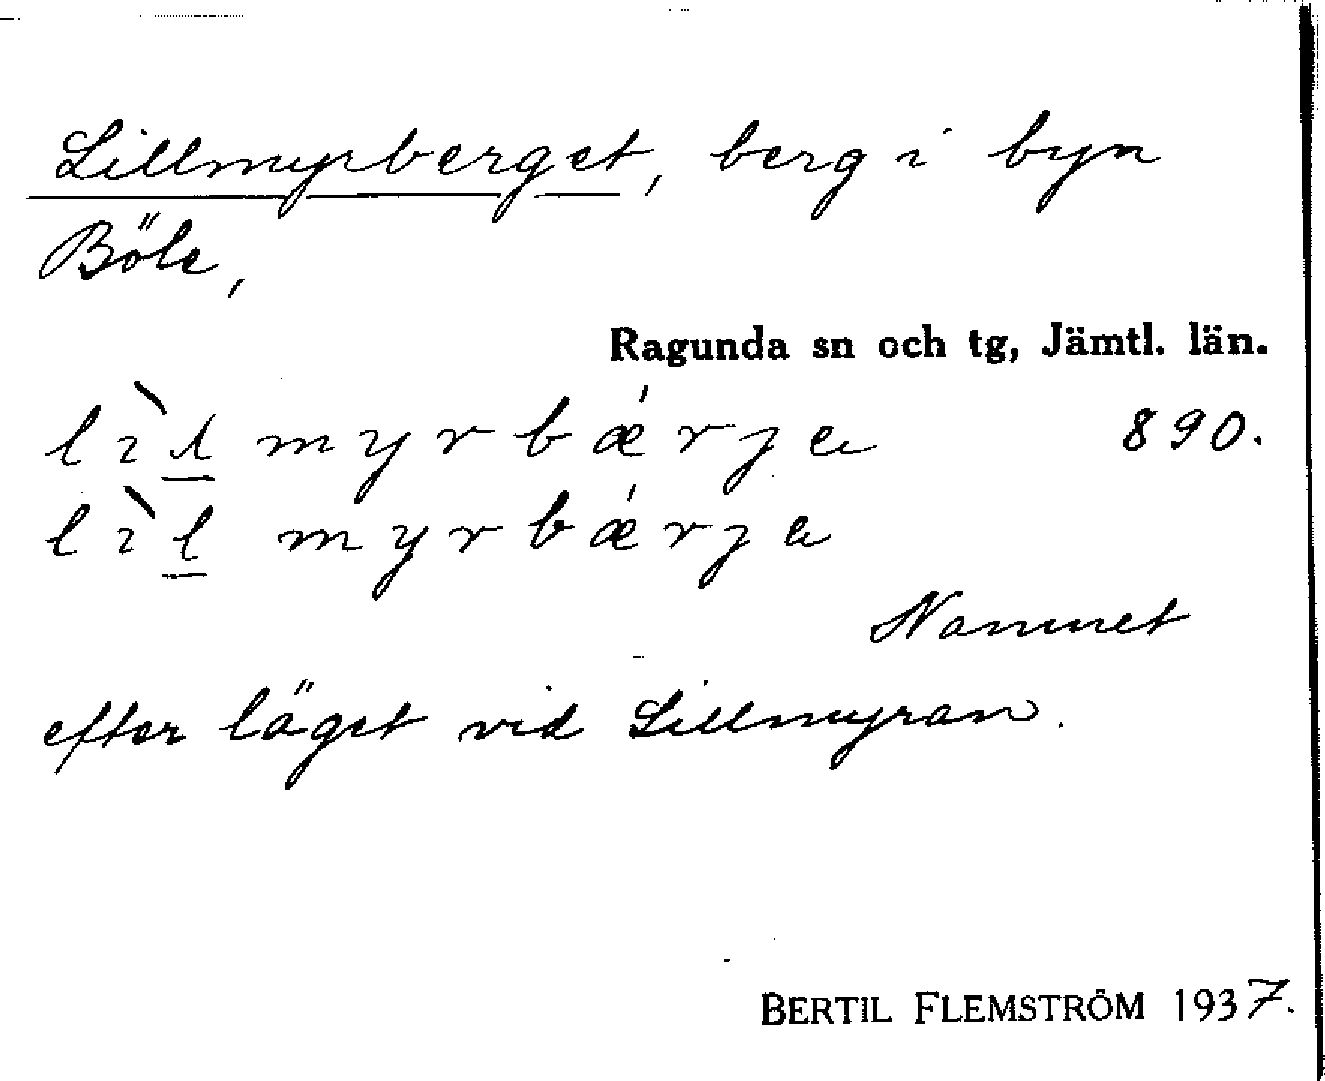 Lillmyrberget, berg i byn
Böle,
Ragunda sn och tg, Jämtl. län.
lìl̲ myrbǽrja 890.
lìl̲ myrbǽrja
Namnet
efter läget vid Lillmyran.
BERTIL FLEMSTRÖM 1937.